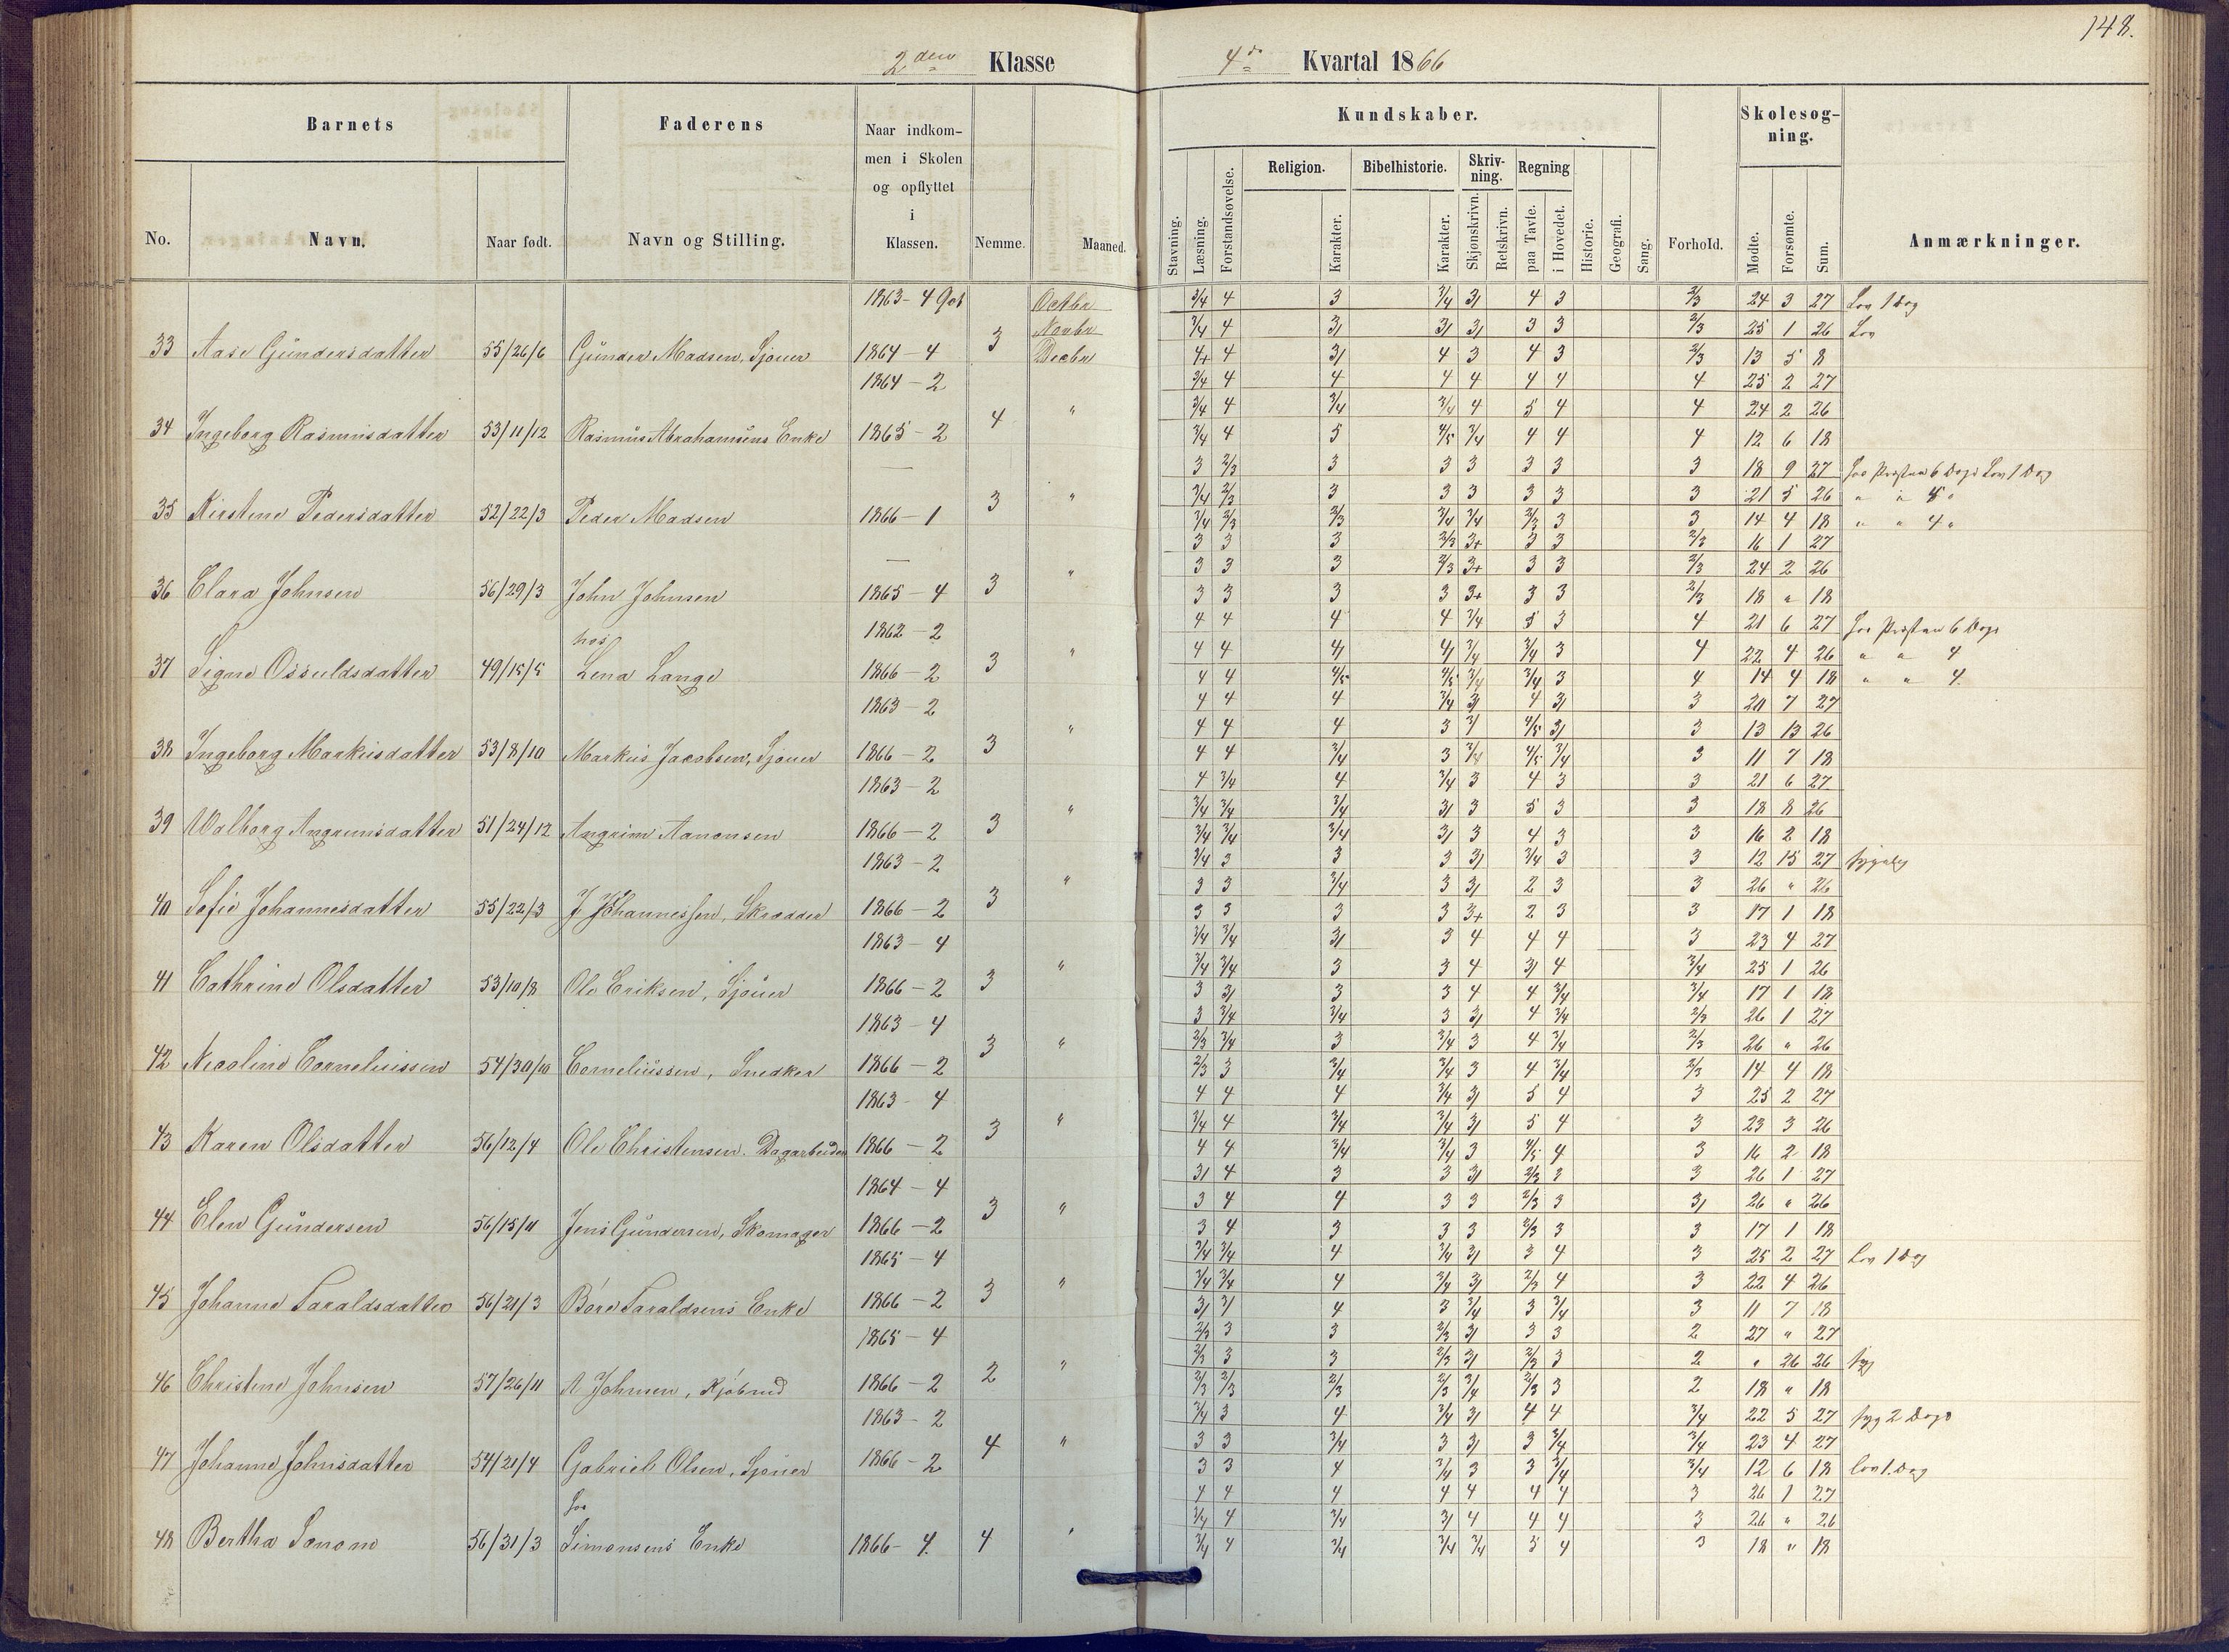 148.
2den Klasse
4de Kvartal 1866
Barnets
Faderens
Naar indkom-
men i Skolen
og opflyttet
i
Klassen.
No.
Navn.
Naar født.
Navn og Stilling.
Nemme.
Maaned.
Kundskaber.
Stavning.
Læsning.
Forstandsøvelse.
Religion.
Karakter.
Bibelhistorie.
Karakter.
Skriv-
ning.
Skjønskrivn.
Retskrivn.
Regning
paa Tavle.
i Hovedet.
Historie.
Geografi.
Sang.
Forhold.
Skolesøg-
ning.
Mødte.
Forsømte.
Sum.
Anmærkninger.
1863 - 4 Octbr 3/4 4 3 3/4 3/ 4 3 2/3 24 3 27 Lov 1 Dag
Novbr 3/4 4 3/ 3/ 3/ 3 3 2/3 25 1 26 Lov
33 Aase Gundersdatter 55/26/6 Gunder Madsen, Sjouer 1864 - 4 3 Decbr 4+ 4 3/ 4 3 4 3 2/3 13 5 8
1864 - 2 3/4 4 4 4 4 4 4 4 25 2 27
" 3/4 4 3/4 3/4 4 5 4 4 24 2 26
34 Ingeborg Rasmusdatter 53/11/12 Rasmus Abrahamsens Enke 1865 - 2 4 3/4 4 5 4/5 3/4 4 4 4 12 6 18
3 2/3 3 3 3 3 3 3 18 9 27 hos Præsten 6 Dage Lov 1 Dag
" 3/4 2/3 3 3 3 3 3 3 21 5 26 " " 5 "
35 Kirstine Pedersdatter 52/22/3 Peder Madsen 1866 - 1 3 3/4 2/3 2/3 3/4 3/4 2/3 3 3 14 4 18 " " 4 "
3 3 3 2/3 3+ 3 3 2/3 16 1 27
" 3 3 3 2/3 3+ 3 3 2/3 24 2 26
36 Clara Johnsen 56/29/3 John Johnsen 1865 - 4 3 3 3 3 3 3+ 3 3 2/3 18 " 18
hos 1862 - 2 4 4 4 4 3/4 5 3 4 21 6 27 hos Præsten 6 Dage
" 4 4 4/ 4/ 3/4 3/4 3 4 22 4 26 " " 4
37 Signe Osuldsdatter 49/15/5 Lena Lange 1866 - 2 3 4 4 4/5 4/5 3/4 3/4 3 4 14 4 18 " " 4
1863 - 2 4 4 4 3/4 3/ 4 3/ 3 20 7 27
" 4 4 4 3 3/ 4/5 3/ 3 13 13 26
38 Ingeborg Markusdatter 53/8/10 Markus Jacobsen, Sjouer 1866 - 2 3 4 4 3/4 3 3/4 4/5 3/4 3 11 7 18
1863 - 2 4 3/4 4 3/4 3 4 3 3 21 6 27
" 3/4 3/4 3/4 3/ 3 5 3 3 18 8 26
39 Walborg Angrimsdatter 51/24/12 Angrim Aanonsen 1866 - 2 3 3/4 3/4 3/4 3/ 3 4 3 3 16 2 18
1863 - 2 3/4 3 3 3 3/ 3/4 3 3 12 15 27
" 3 3 3/4 3 3/ 2 3 3 26 " 26
40 Sofie Johannesdatter 55/22/3 J Johannessen, Skrædder 1866 - 2 3 3 3 3 3 3+ 2 3 3 17 1 18
1863 - 4 3/4 3/4 3/ 3 4 4 4 3 23 4 27
" 3/4 3/4 3 3 4 3/ 4 3/4 25 1 26
41 Cathrine Olsdatter 53/10/8 Ole Eriksen, Sjouer 1866 - 2 3 3 3/ 3 3 4 4 3/4 3/4 17 1 18
1863 - 4 3 3/4 3/4 3 3/ 4 3/4 2/3 26 1 27
" 2/3 3/4 3 3/4 3 4 3/4 2/3 26 " 26
42 Nicoline Corneliussen 54/30/10 Corneliussen, Snedker 1866 - 2 3 2/3 3 3/4 3/4 3 4 3/4 2/3 14 4 18
1863 - 4 4 4 4 3/4 3/ 5 4 3 25 2 27
" 3/4 4 3/4 3/4 3/ 5 4 3 23 3 26
43 Karen Olsdatter 56/12/4 Ole Christensen. Dagarbeider 1866 - 2 3 4 4 3/4 3/4 3 4/5 4 3 16 2 18
1864 - 4 3/ 4 3 3 3/ 2/3 3 3 26 1 27
" 3 4 4 3 3 2/3 3 3/ 26 " 26
44 Elen Gundersen 56/15/11 Jens Gundersen, Skomager 1866 - 2 3 3 4 3 3 3 2/3 3 3 17 1 18
1865 - 4 3/4 3/4 4 3/4 3/ 3 4 3 25 2 27 Lov 1 Dag
" 3/4 3/4 4 3/4 3/ 2/3 4 3 22 4 26
45 Johanne Taraldsdatter 56/21/3 Børe Taraldsens Enke 1866 - 2 3 3/ 3/ 4 3 3/4 3 3/4 3 11 7 18
1865 - 4 2/3 3 3 2/3 3/ 3 3 2 27 " 27
" 2/3 3 3 2/3 3/ 2/3 3 2 " 26 26 syg
46 Christine Johnsen 57/26/11 A Johnsen, Kjøbmd 1866 - 2 2 2/3 2/3 2/3 2/3 3/4 2/3 3 2 18 " 18
1863 - 2 3/4 3 4 3/4 3/ 4 4 3/4 22 5 27 syg 2 Dage
" 3 3 3/4 3 3/ 3 3/4 3/4 23 4 27
47 Johanne Johnsdatter 54/21/4 Gabriel Olsen, Sjouer 1866 - 2 4 3 3 4 3/4 3 3 3/4 3/4 12 6 18 Lov 1. Dag
hos 4 4 4 4 4 4 4 3 26 1 27
3/4 4 3/4 3/ 4 4 4 3 26 " 26
48 Bertha Tonom 56/31/3 Simonsens Enke 1866 - 4. 4 " 3/4 4 3/4 3/4 3/4 5 4 3 18 " 18